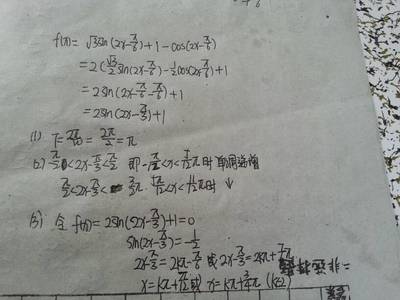 f(x) = √3sin(2x-π/6)+1-cos(2x-π/6)
=2(√3/2sin(2x-π/6)-1/2cos(2x-π/6)+1
=2sin(2x-π/6-π/6)+1
=2sin(2x-π/3)+1
(1) T=2π/ω=2π/2=π
(2) -π/2<2x-π/3<π/2 即-π/12<x<5π/12时 单调递增
π/2<2x-π/3<3/2π 5π/12<x<11π/12时 ↓
(3) 令 f(x)=2sin(2x-π/3)+1=0
sin(2x-π/3)=-1/2
2x-π/3=2kπ-π/6 或 2x-π/3=2kπ+7/6π
x=kπ+π/12 或 x=kπ+3/4π (k∈Z)